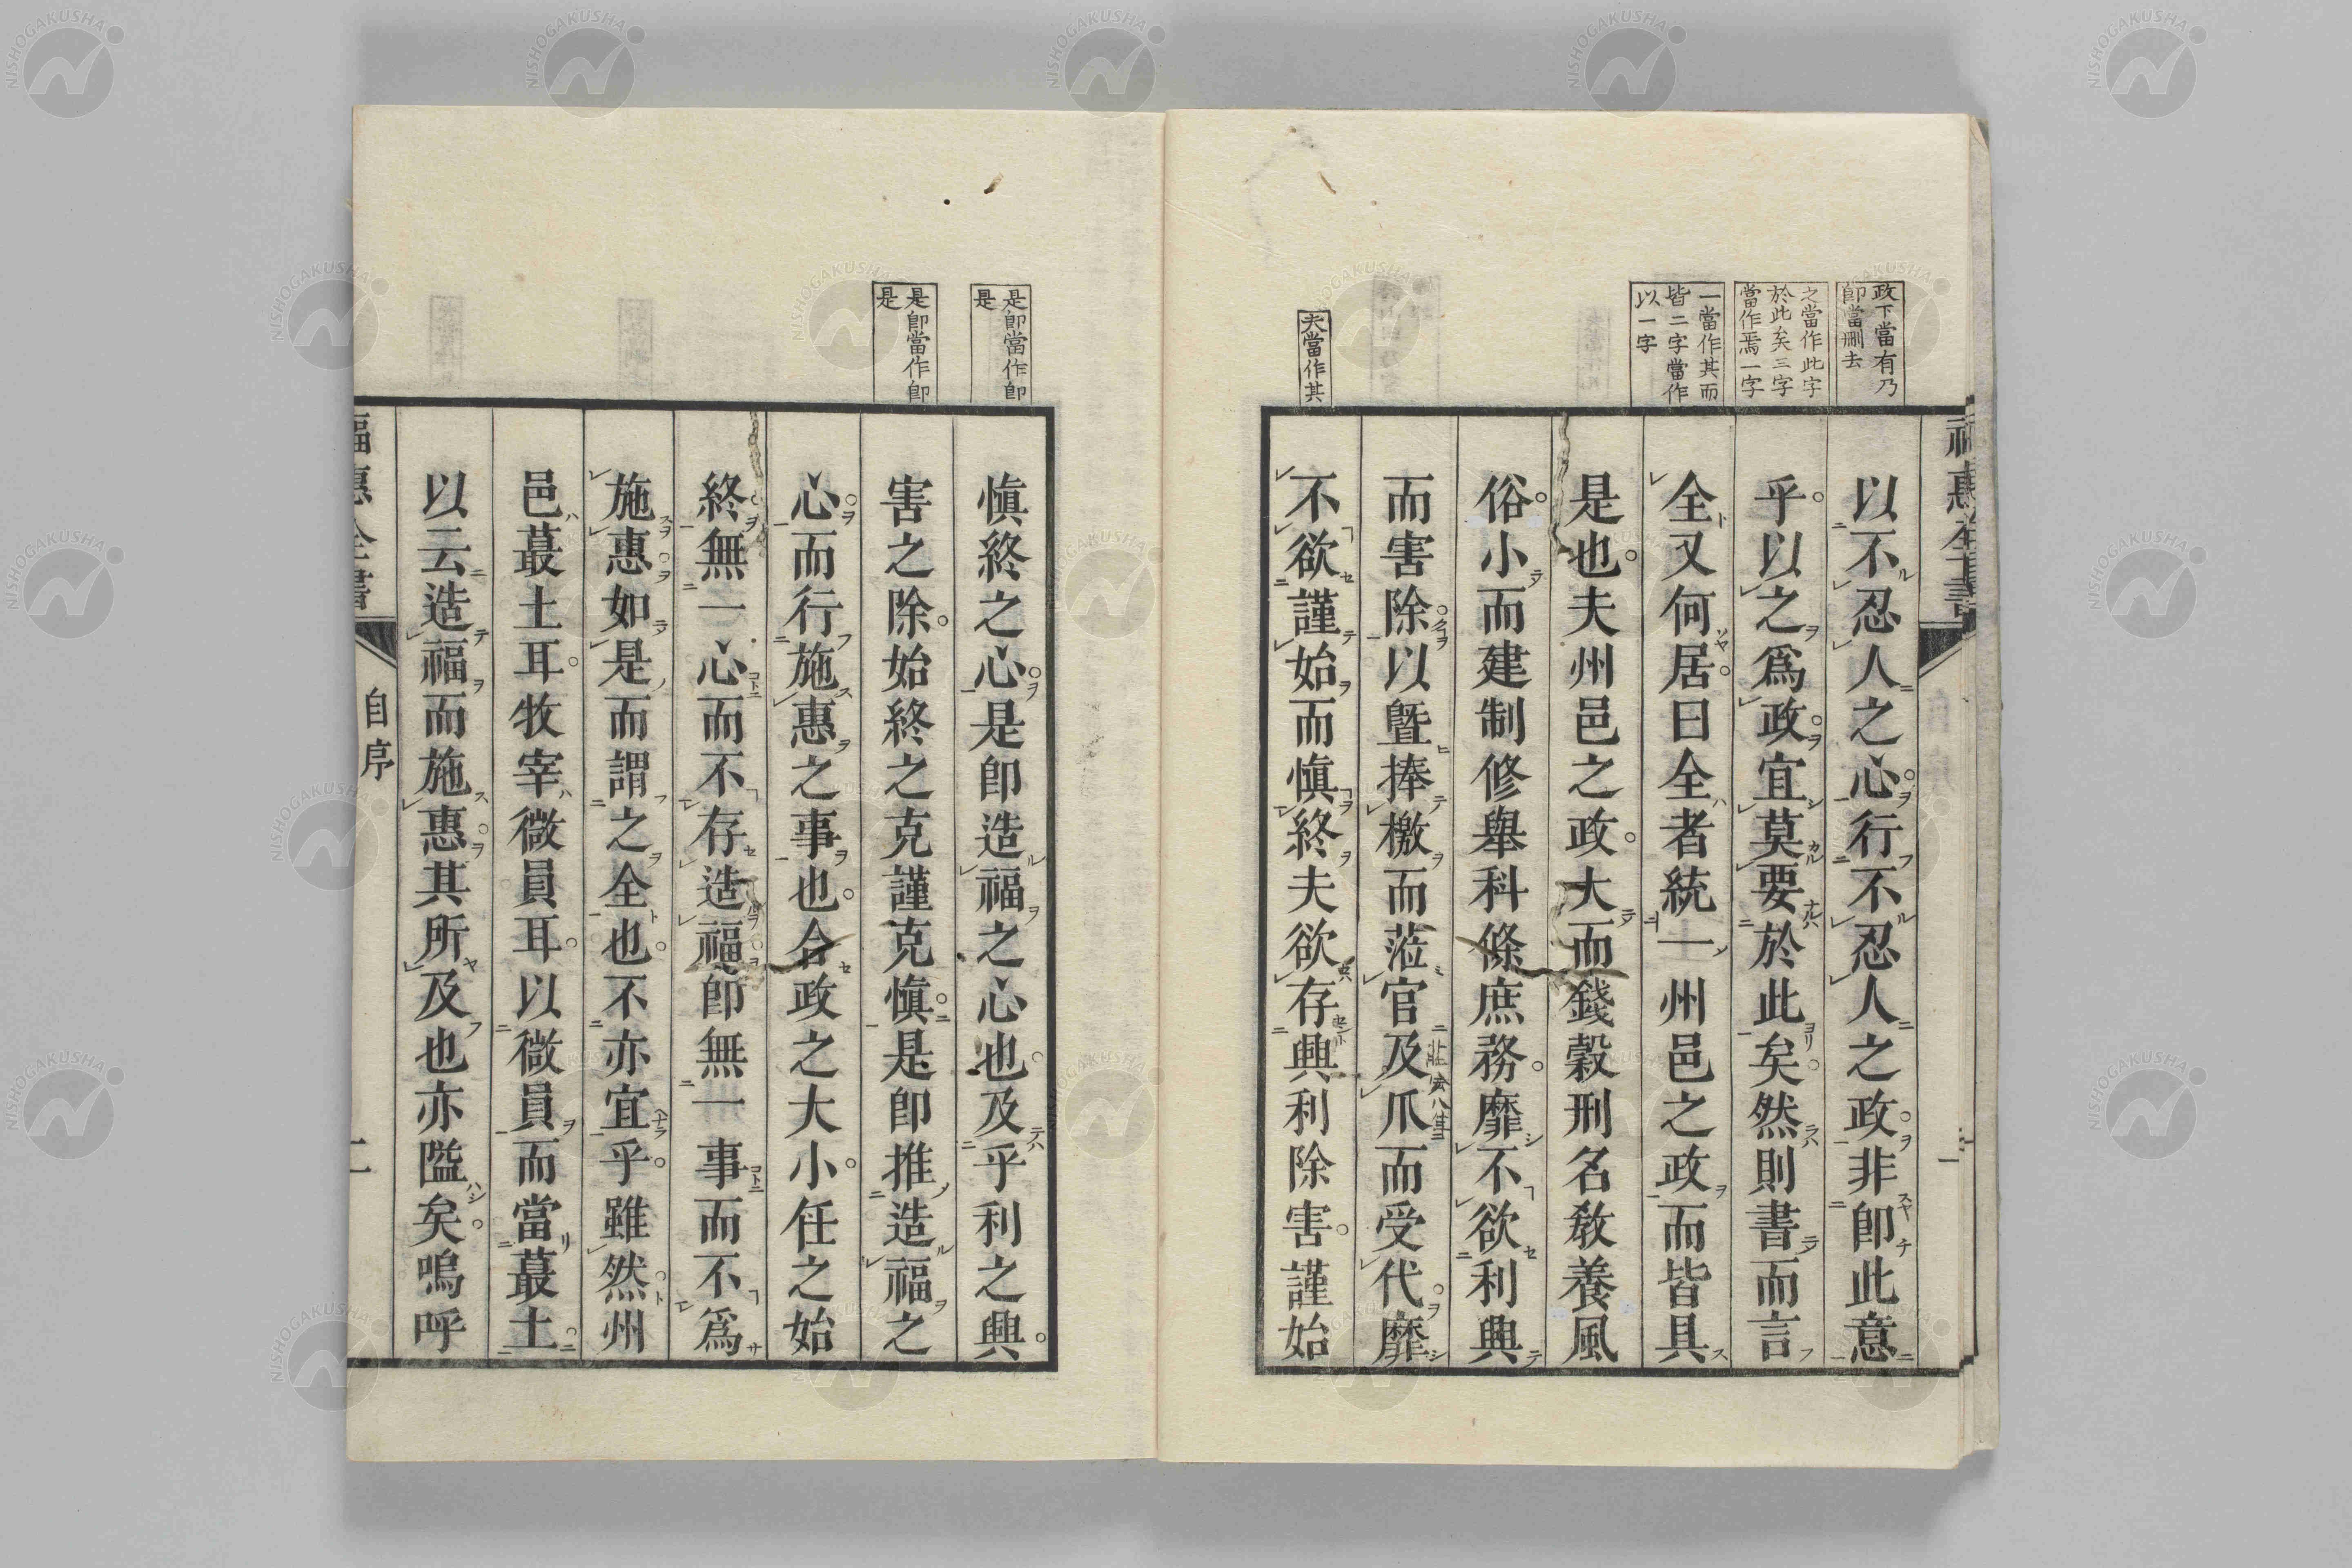 政下當有乃
卽當刪去
之當作此字
於此矣三字
當作焉一字
一當作其而
皆二字當作
以一字
夫當作其
以不忍人之心行不忍人之政非卽此意
乎以之爲政宜莫要於此矣然則書而言
全又何居曰全者統一州邑之政而皆具
是也夫州邑之政大而錢穀刑名敎養風
俗小而建制修舉科條庶務靡不欲利興
而害除以曁捧檄而蒞官及爪而受代靡
不欲謹始而愼終夫欲存興利除害謹始
是卽當作卽
是
是卽當作卽
是
愼終之心是卽造福之心也及乎利之興
害之除始終之克謹克愼是卽推造福之
心而行施惠之事也合政之大小任之始
終無一心而不存造福卽無一事而不爲
施惠如是而謂之全也不亦宜乎雖然州
邑蕞土耳牧宰微員耳以微員而當蕞土
以云造福而施惠其所及也亦隘矣嗚呼
福惠全書
自序
二
NISHOGAKUSHA